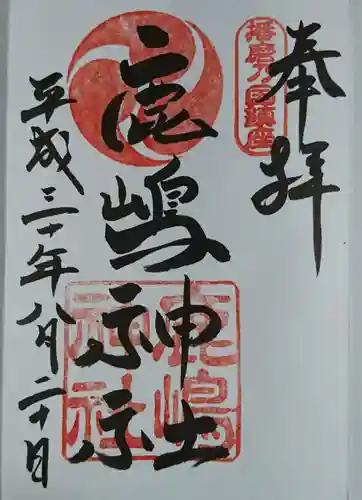 奉拝
播磨ノ国鎮座
鹿嶋神社
鹿嶋神社
平成三十年八月二十日